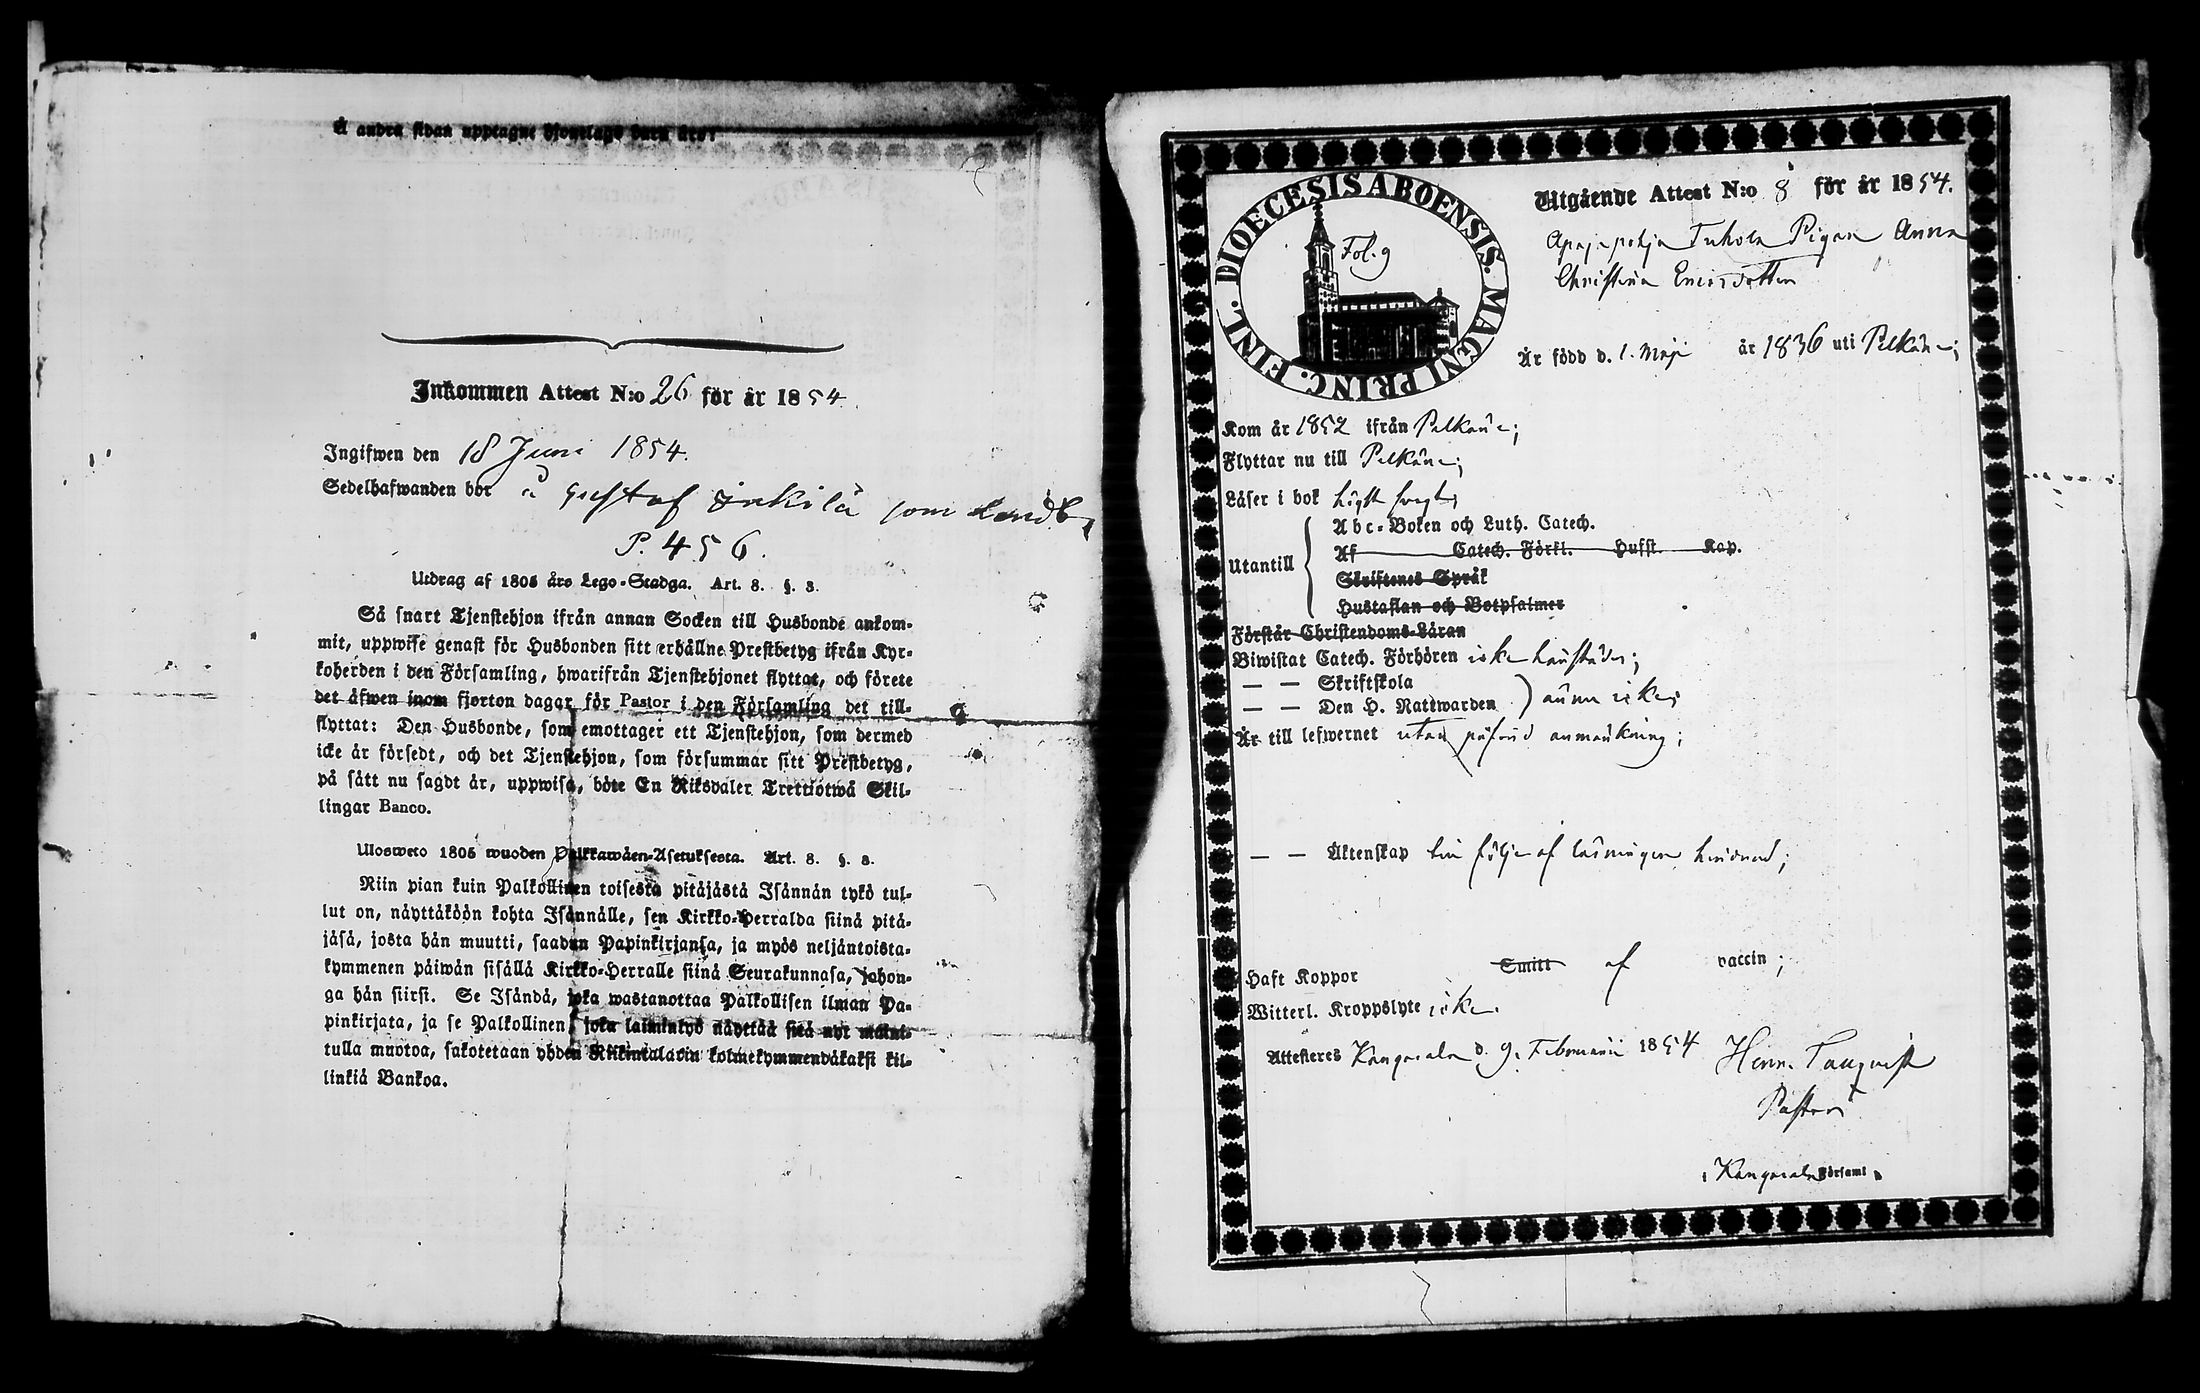 Å andra sidan upptagne Hjonelags barn äro:
Inkommen Attest N:o 26 för år 1854
Ingifwen den 18 Juni 1854.
Sedelhafwanden bor å Gustaf som
P. 456.
Utdrag af 1805 års Lego-Stadga. Art. 8. §. 3.
Så snart Tjenstehjon ifrån annan Socken till Husbonde ankom-
mit, uppwise genast för Husbonden sitt erhållne Prestbetyg ifrån Kyr-
koherden i den Församling, hwarifrån Tjenstehjonet flyttat, och förete
det äfwen inom fjorton dagar för Pastor i den Församling det till-
flyttat: Den Husbonde, som emottager ett Tjenstehjon, som dermed
icke är försedt, och det Tjenstehjon, som försummar sitt Prestbetyg,
på sätt nu sagdt är, uppwisa, böte En Riksdaler Trettiotwå Skil-
lingar Banco.
Ulosweto 1805 wuoden Palkkawäen-Asetuksesta. Art. 8. §. 3.
Niin pian kuin Palkollinen toisesta pitäjästä Isännän tykö tul-
lut on, näyttäköön kohta Isännälle, sen Kirkko-Herralda siinä pitä-
jäsä, josta hän muutti, saadun Papinkirjansa, ja myös neljäntoista-
kymmenen päiwän sisällä Kirkko-Herralle siinä Seurakunnasa, johon-
ga hän siirsi. Se Isändä, joka wastanottaa Palkollisen ilman Pa-
pinkirjata, ja se Palkollinen, joka laiminlyö näyttää sitä nyt maini-
tulla muotoa, sakotetaan yhden Riikintalarin kolmekymmendäkaksi kil-
linkiä Bankoa.
DIOECESIS ABOENSIS. MAGNI PRINC. FINL.
Fol. 9
Utgående Attest N:o 8 för år 1854.
Apajapohja Tuhola Pigan Anna
Christina Ericsdotter
Är född d. 1. Maji år 1836 uti Pelkäne;
Kom år 1852 ifrån Pelkäne;
Flyttar nu till Pelkäne;
Läser i bok högst swagt;
Utantill
Abc-Boken och Luth. Catech.
Af Catech. Förkl. Hufst. Kap.
Skriftenes Språk
Hustaflan och Botpsalmer
Förstår Christendoms-Läran
Biwistat Catech. Förhören icke härstädes;
— — Skriftskola
— — Den H. Nattwarden ännu icke;
Är till lefwernet utan påförd anmärkning;
— — Äktenskap till följe af läsningen hindrad;
Haft Koppor Smitt af vaccin;
Witterl. Kroppslyte icke.
Attesteras Kangasala d. 9. Februarii 1854 Henr.
Pastor
i Kangasala Församl.